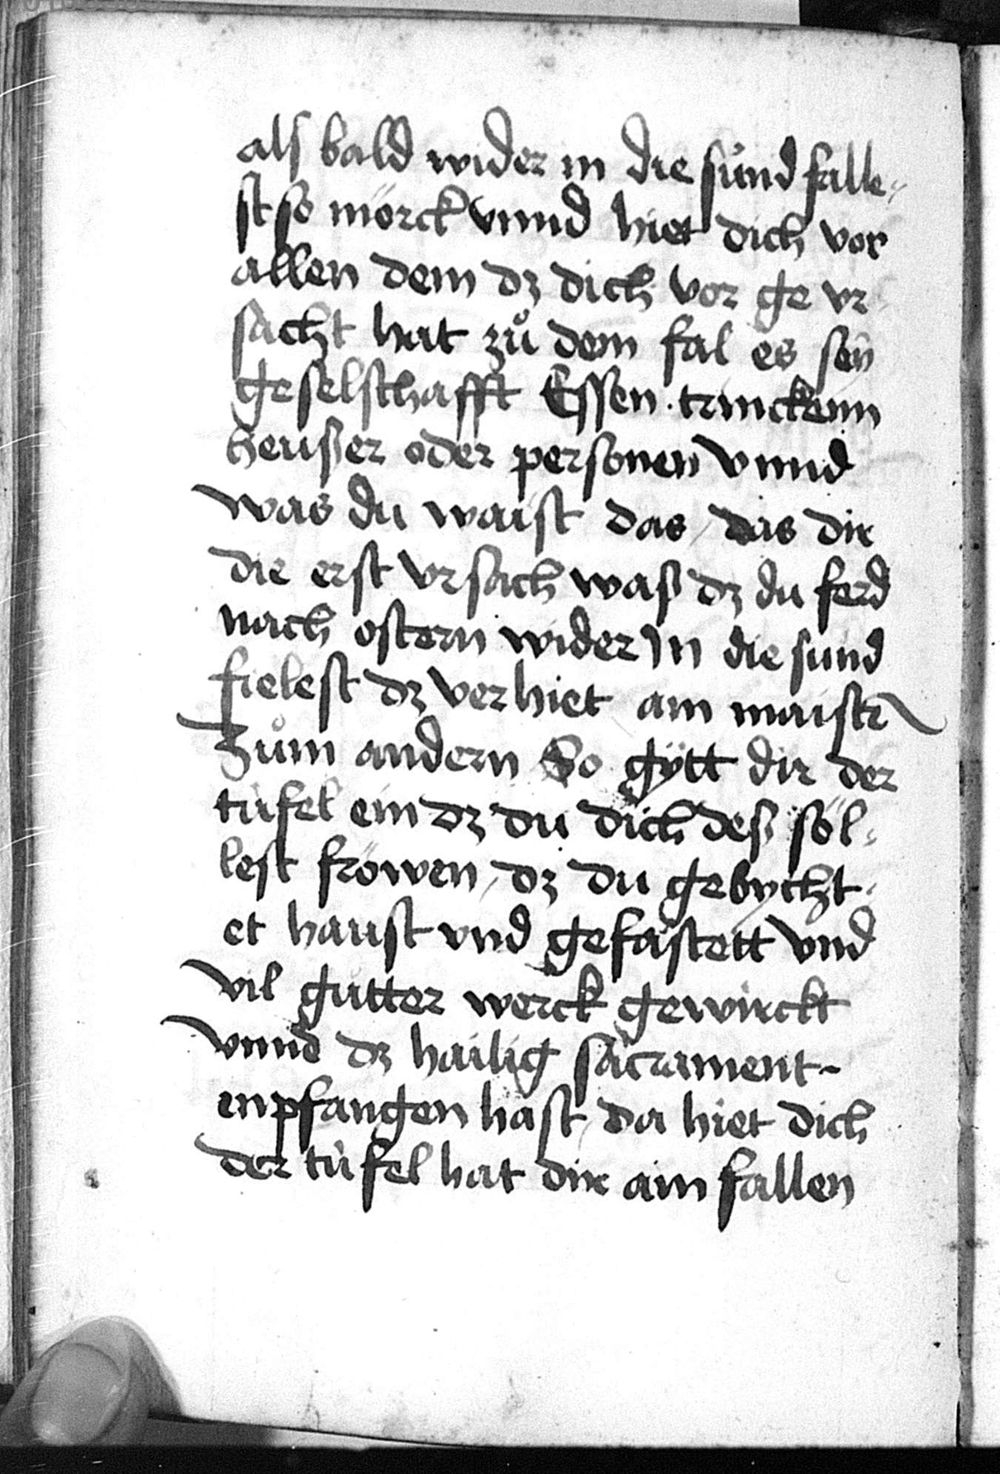 als bald wider in die sünd falle-
st so mörck vnnd hiet dich vor
allen dem dz dich vor ge vr
sacht hat zů dem fal es seÿ
geselschafft Essen trinckenn
heuser oder personen vnnd
was du waist das / das dir
die erst vrsach waß dz du ferd
nach ostern wider jn die sund
fielest dz verhiet am maisten
Zům andern So gytt dir der
tüfel ein dz du dich deß söl-
lest fröwen / dz du gebycht-
et haust vnd gefästett vnd
vil gutter werck gewirckt
vnnd dz hailig sacrament
enpfangen hast / da hiet dich
der tüfel hat dir ain fallen